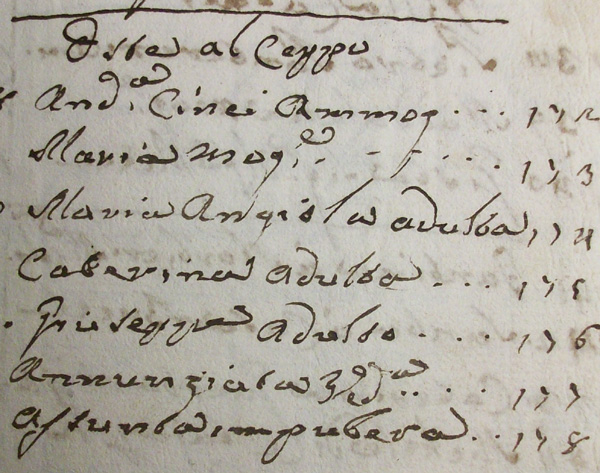 Oste al Ceppo
And.a Cinci Ammog. . . . 172
Maria mog.e . - . . . . 173
Maria Angiola adulta, 174
Caterina adulta . . . 175
Giuseppe adulto . . . . 176
Annunziata . . . . 177
Assunta impubera . . 178